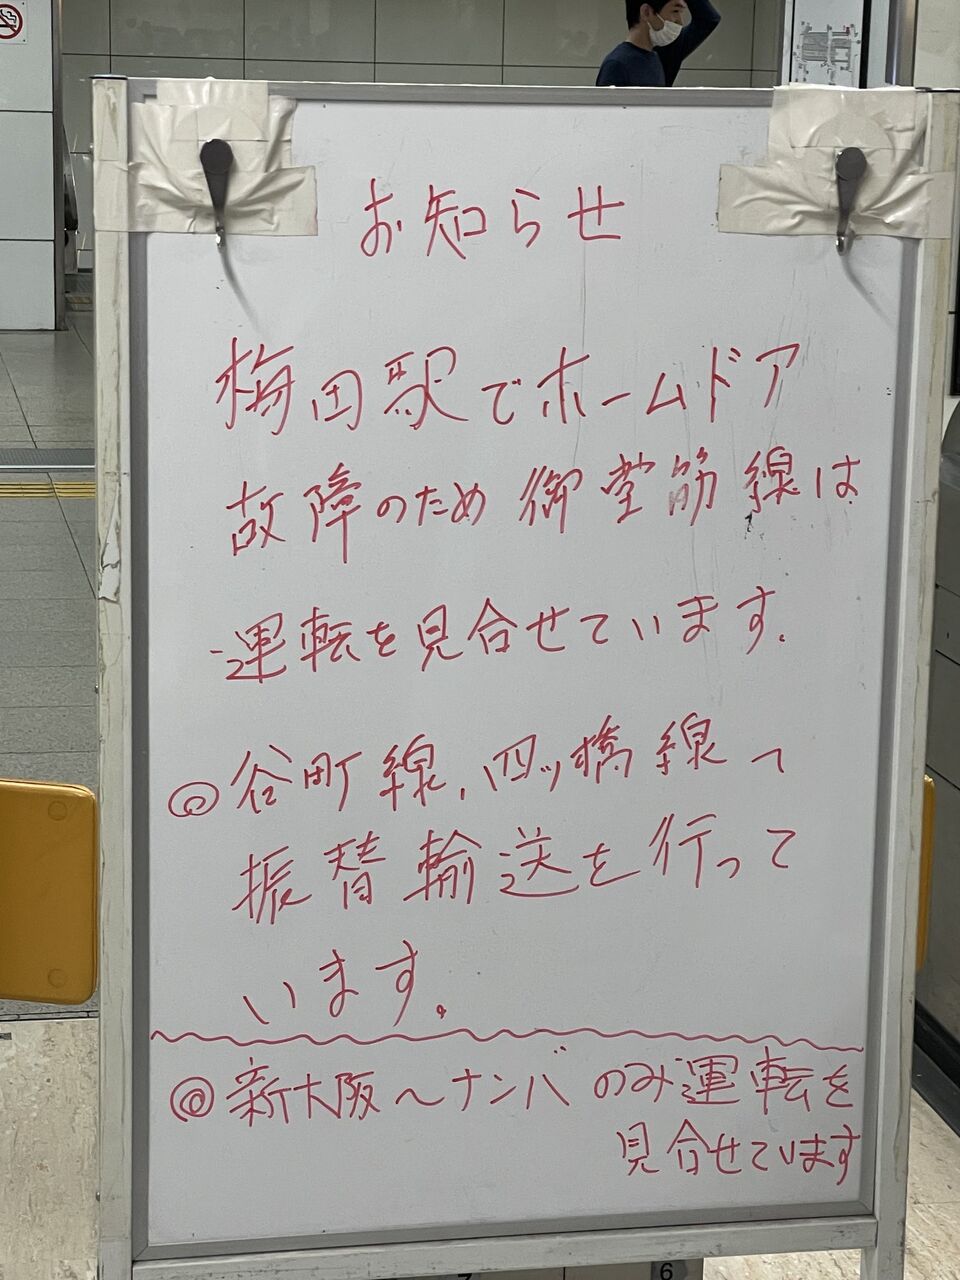 お知らせ
梅田駅でホームドア
故障のため御堂筋線は
運転を見合せています.
◎谷町線、四ッ橋線へ
振替輸送を行って
います。
◎新大阪〜ナンバのみ運転を
見合せています
7
6